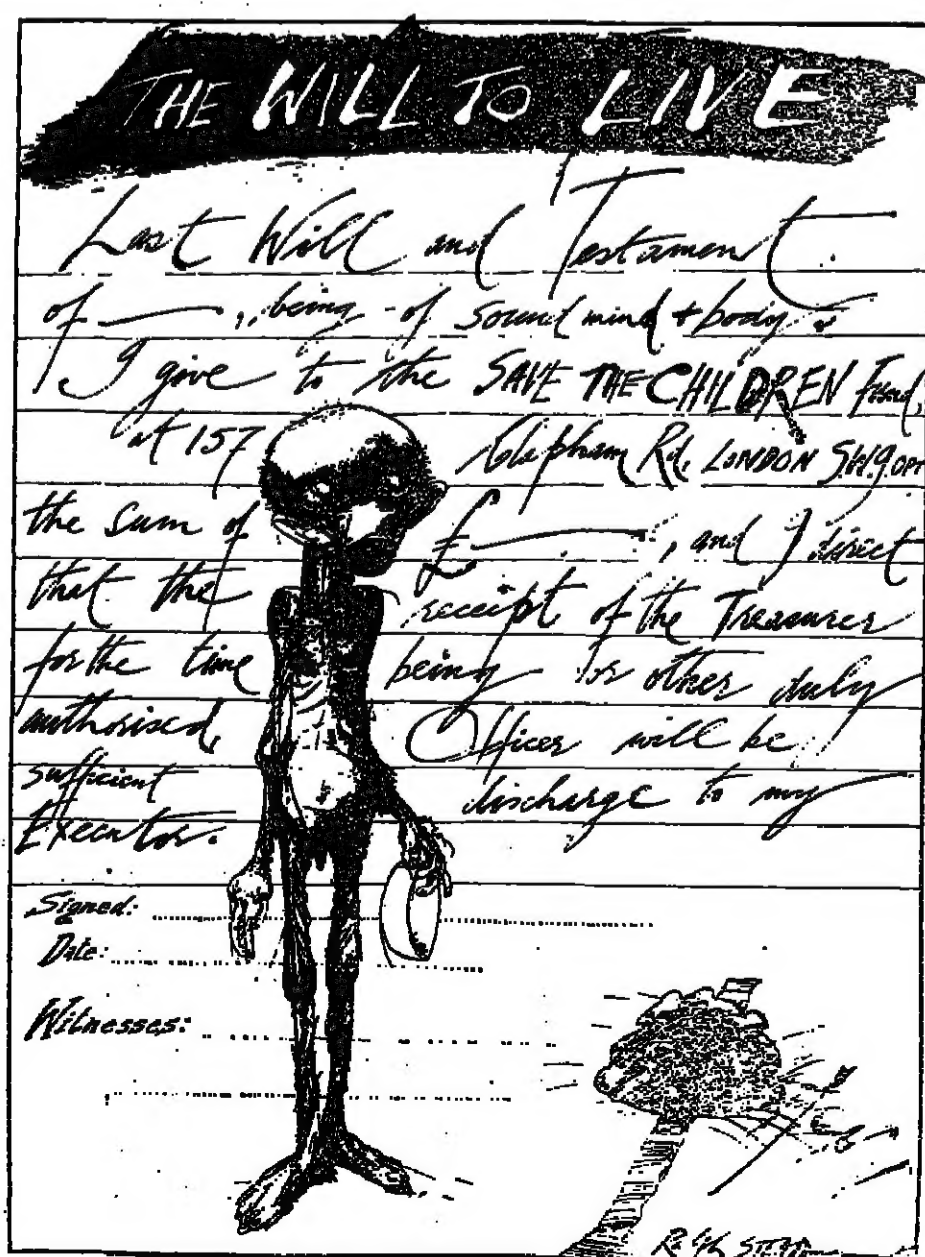 THE WILL TO LIVE
Last Will and Testament.
of ——, being of sound mind + body
I give to the SAVE THE CHILDREN Fund,
at 157 Clapham Rd, LONDON S.W.9.OPT
the sum of £ ——, and I direct
that the receipt of the Treasurer
for the time being or other duly
authorised, Officer will be
sufficient discharge to my
Executor.
Signed:
Date:
Witnesses: